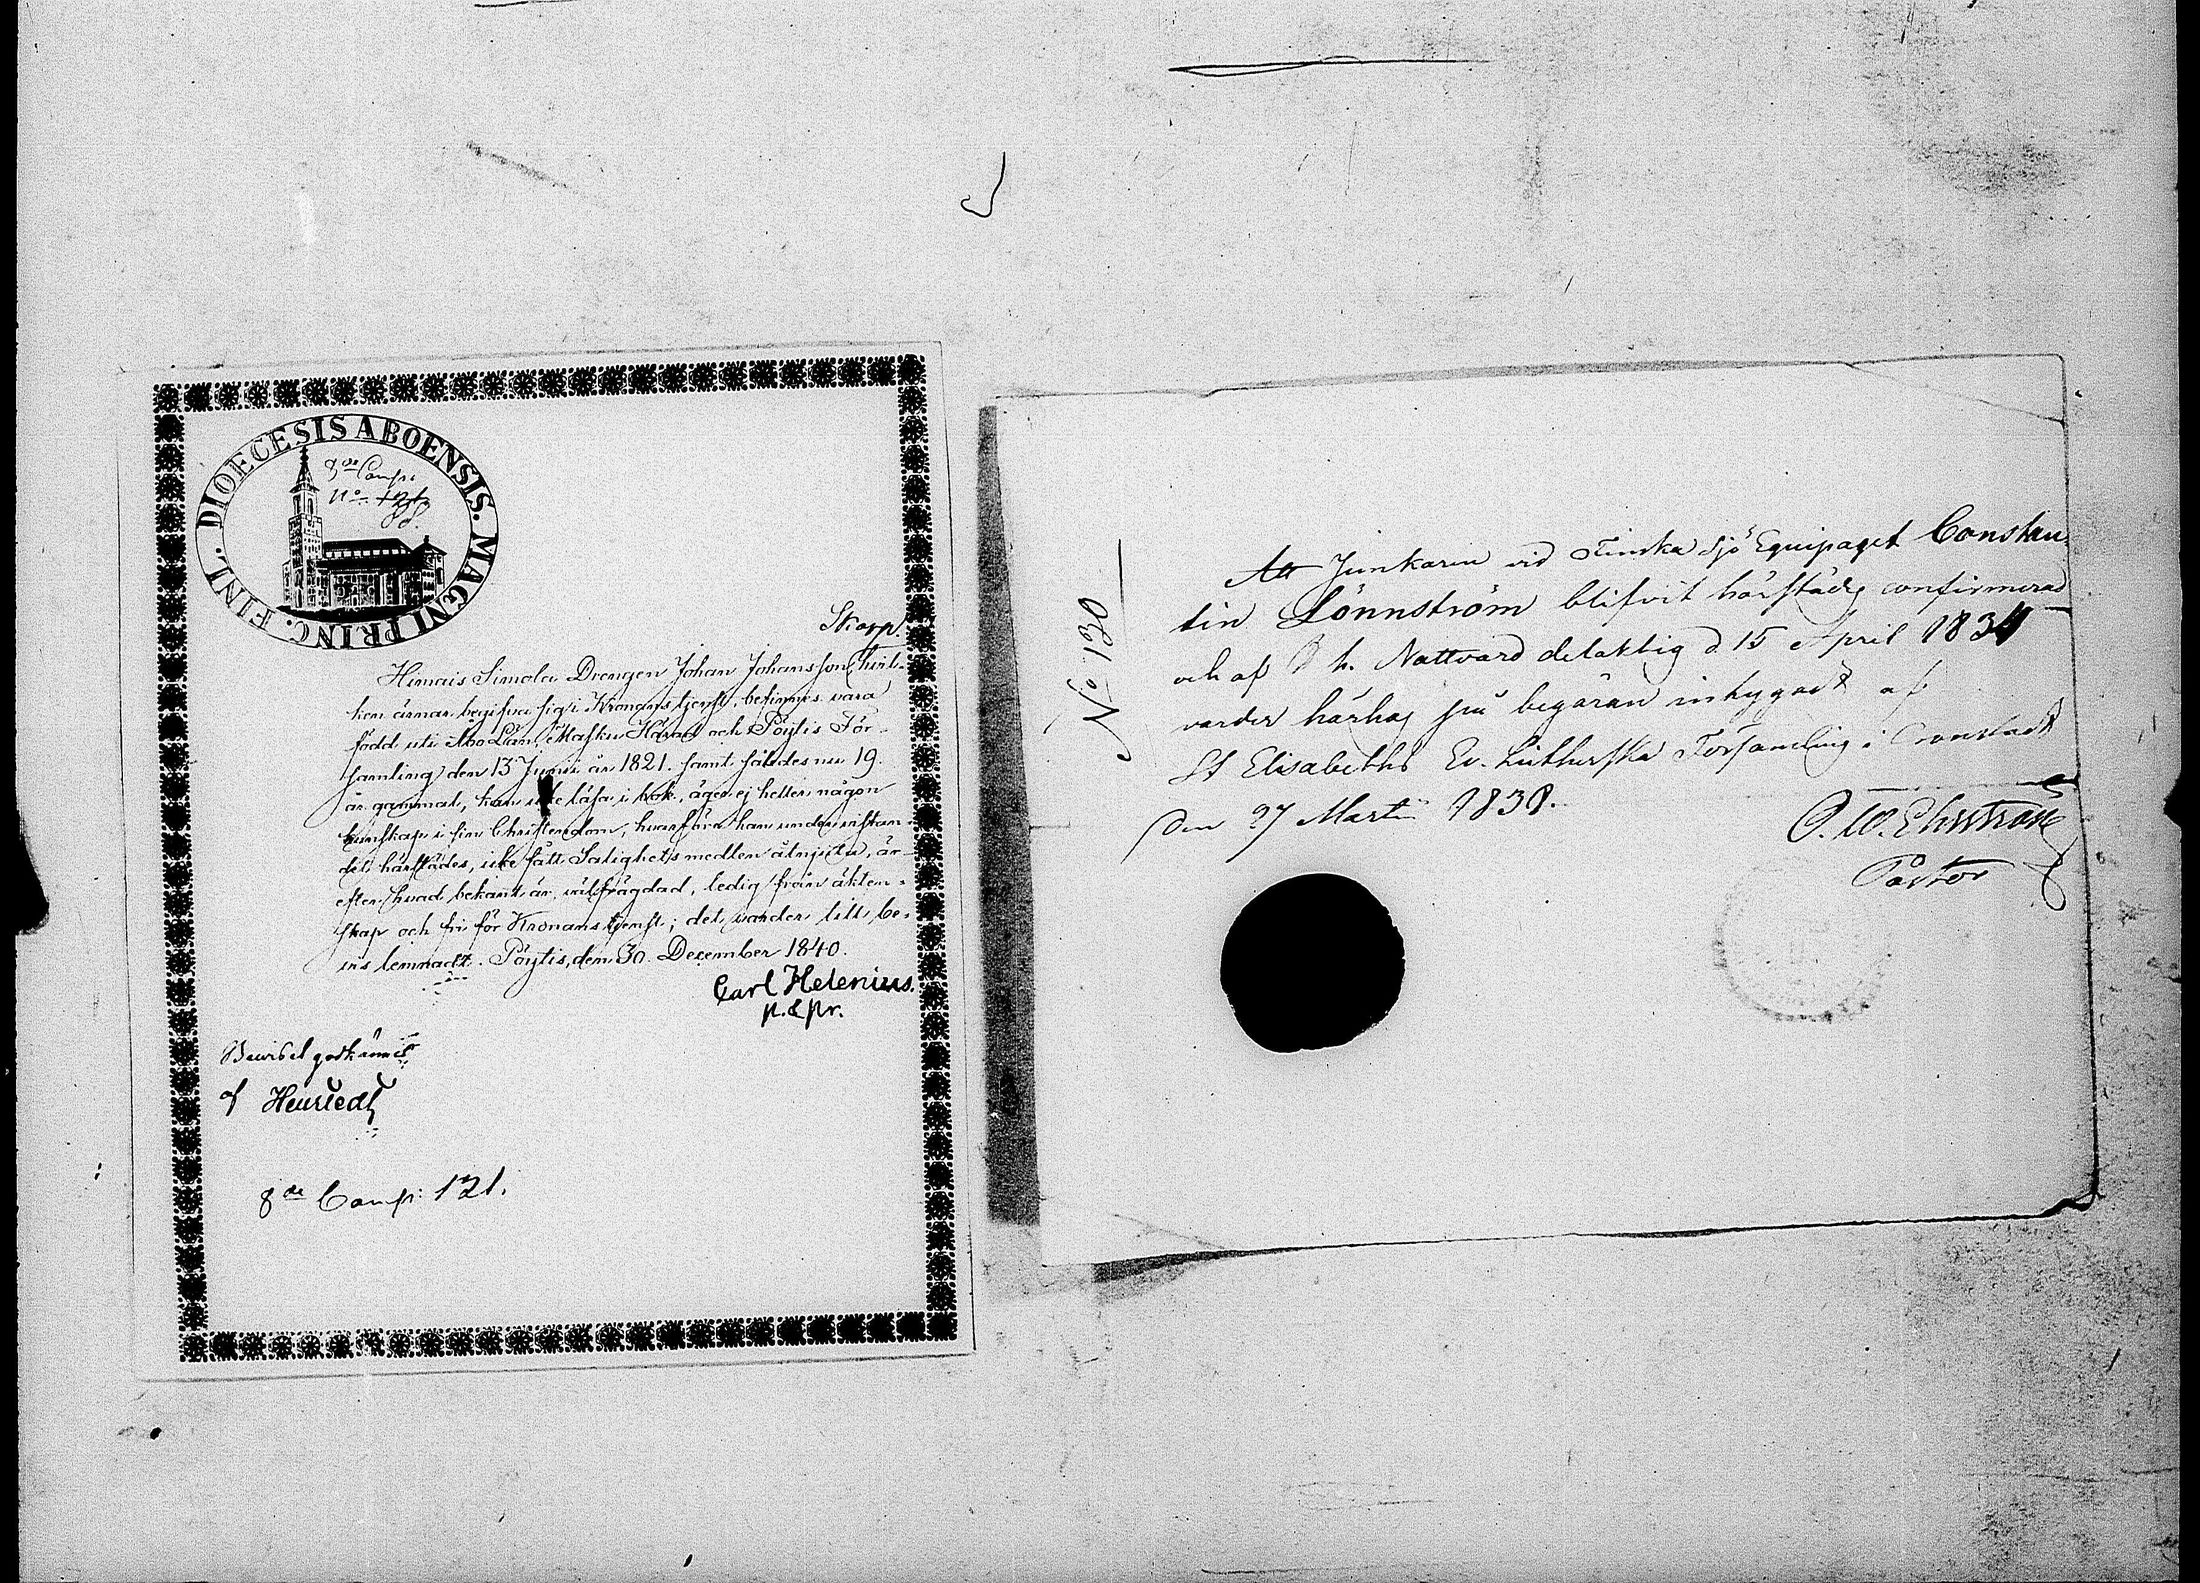 DIOECESIS ABOENSIS. MAGNI PRINC. FINL.
8de Comp:
No 121
88.
Skarp.
Himais Simola Drengen Johan Johansson hvil-
ken ärnar begifva sig i Kronans tjenst, befinnes vara
född uti Åbo Län, Masku Härad och Pöytis För-
samling den 13 Junii år 1821. samt således nu 19.
år gammal, kan icke läsa i bok, äger ej heller någon
kunskap i sin Christendom, hvarföre han under vistan-
det härstädes, icke fått Salighets medlen åtnjuta, är
efter hvad bekant är, välfrägdad, ledig från äkten-
skap och fri för Kronans tjenst; det varder till be-
vis lemnadt. Pöytis, den 30. December 1840.
Carl Helenius.
p. & pr.
Beviset godkännes
af
8de Comp: 121.
No 130
Att Junkaren vid Finska Sjö Equipaget Constan-
tin Lönnström blifvit härstädes confirmerad
och af d. h. Nattvard delaktig d. 15 April 1834
varder härhos på begäran intygadt af
St Elisabeths Ev. Lutherska Församling i Cronstadt
Den 27 Martii 1838.
Pastor